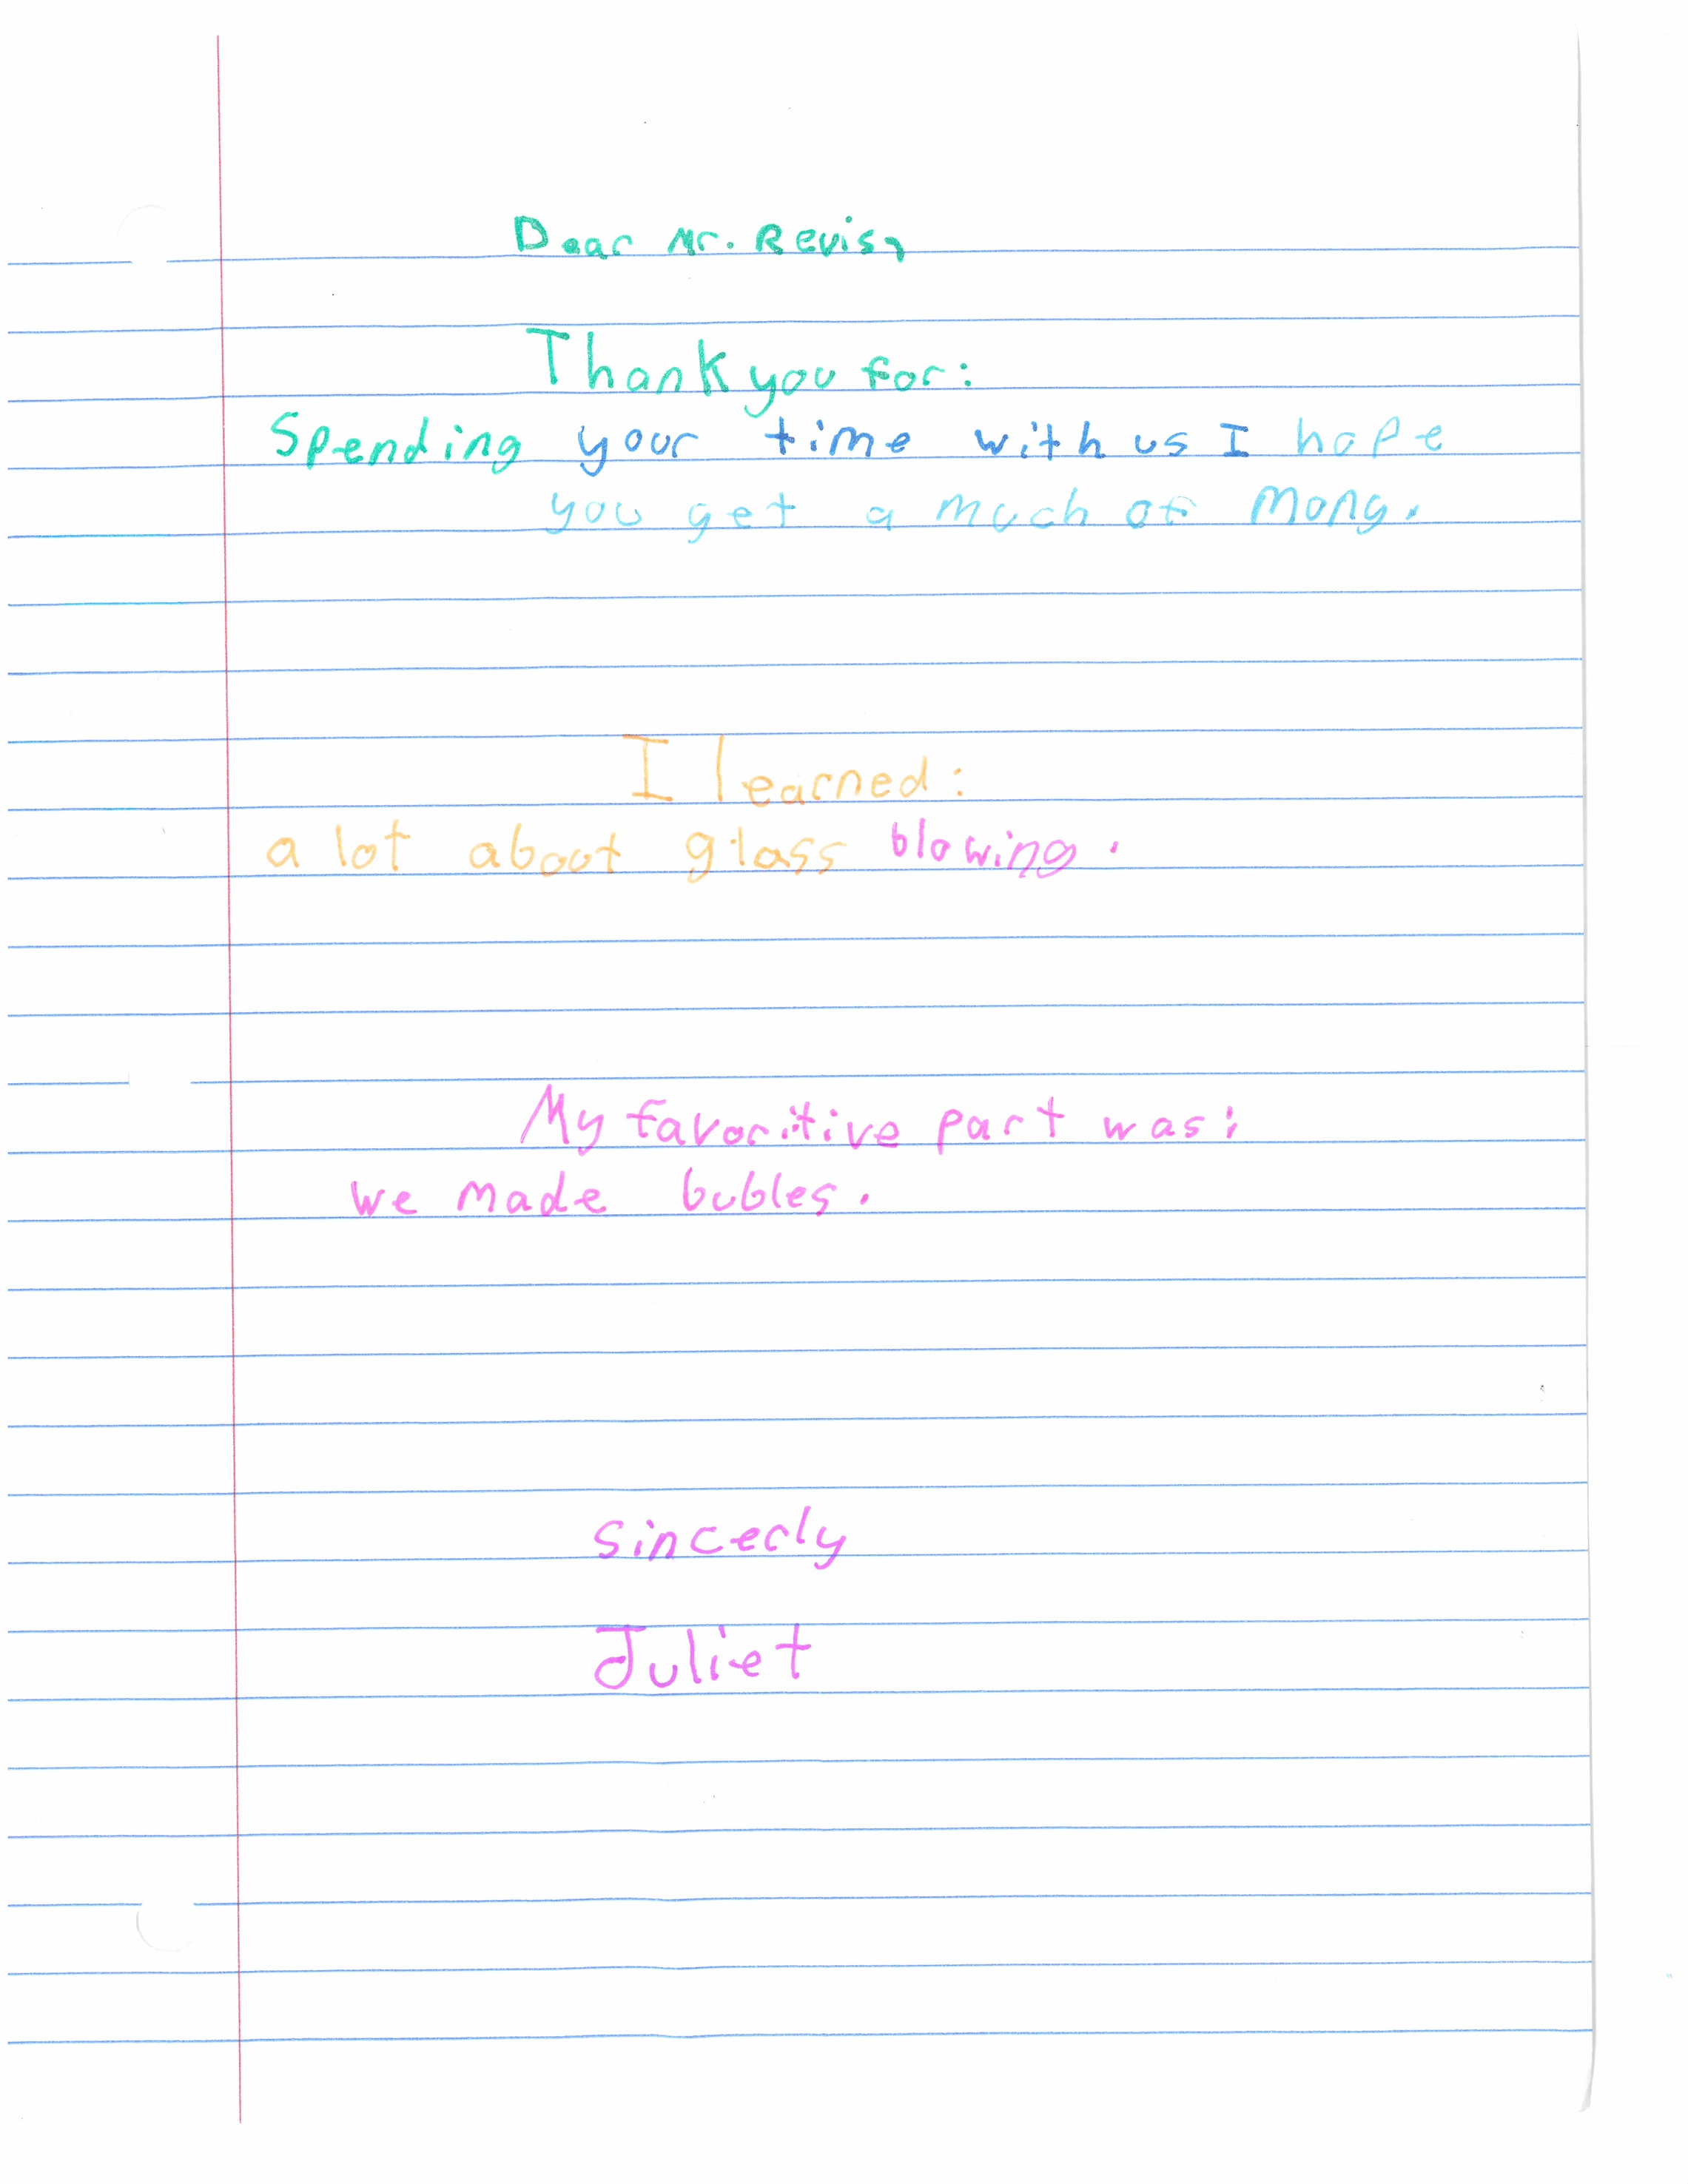 Dear Mr. Revis,
Thank you for:
Spending your time with us I hope
you get a much of mony.
I learned:
a lot about glass blowing.
My favoritive part was:
we made bubles.
Sincerly
Juliet